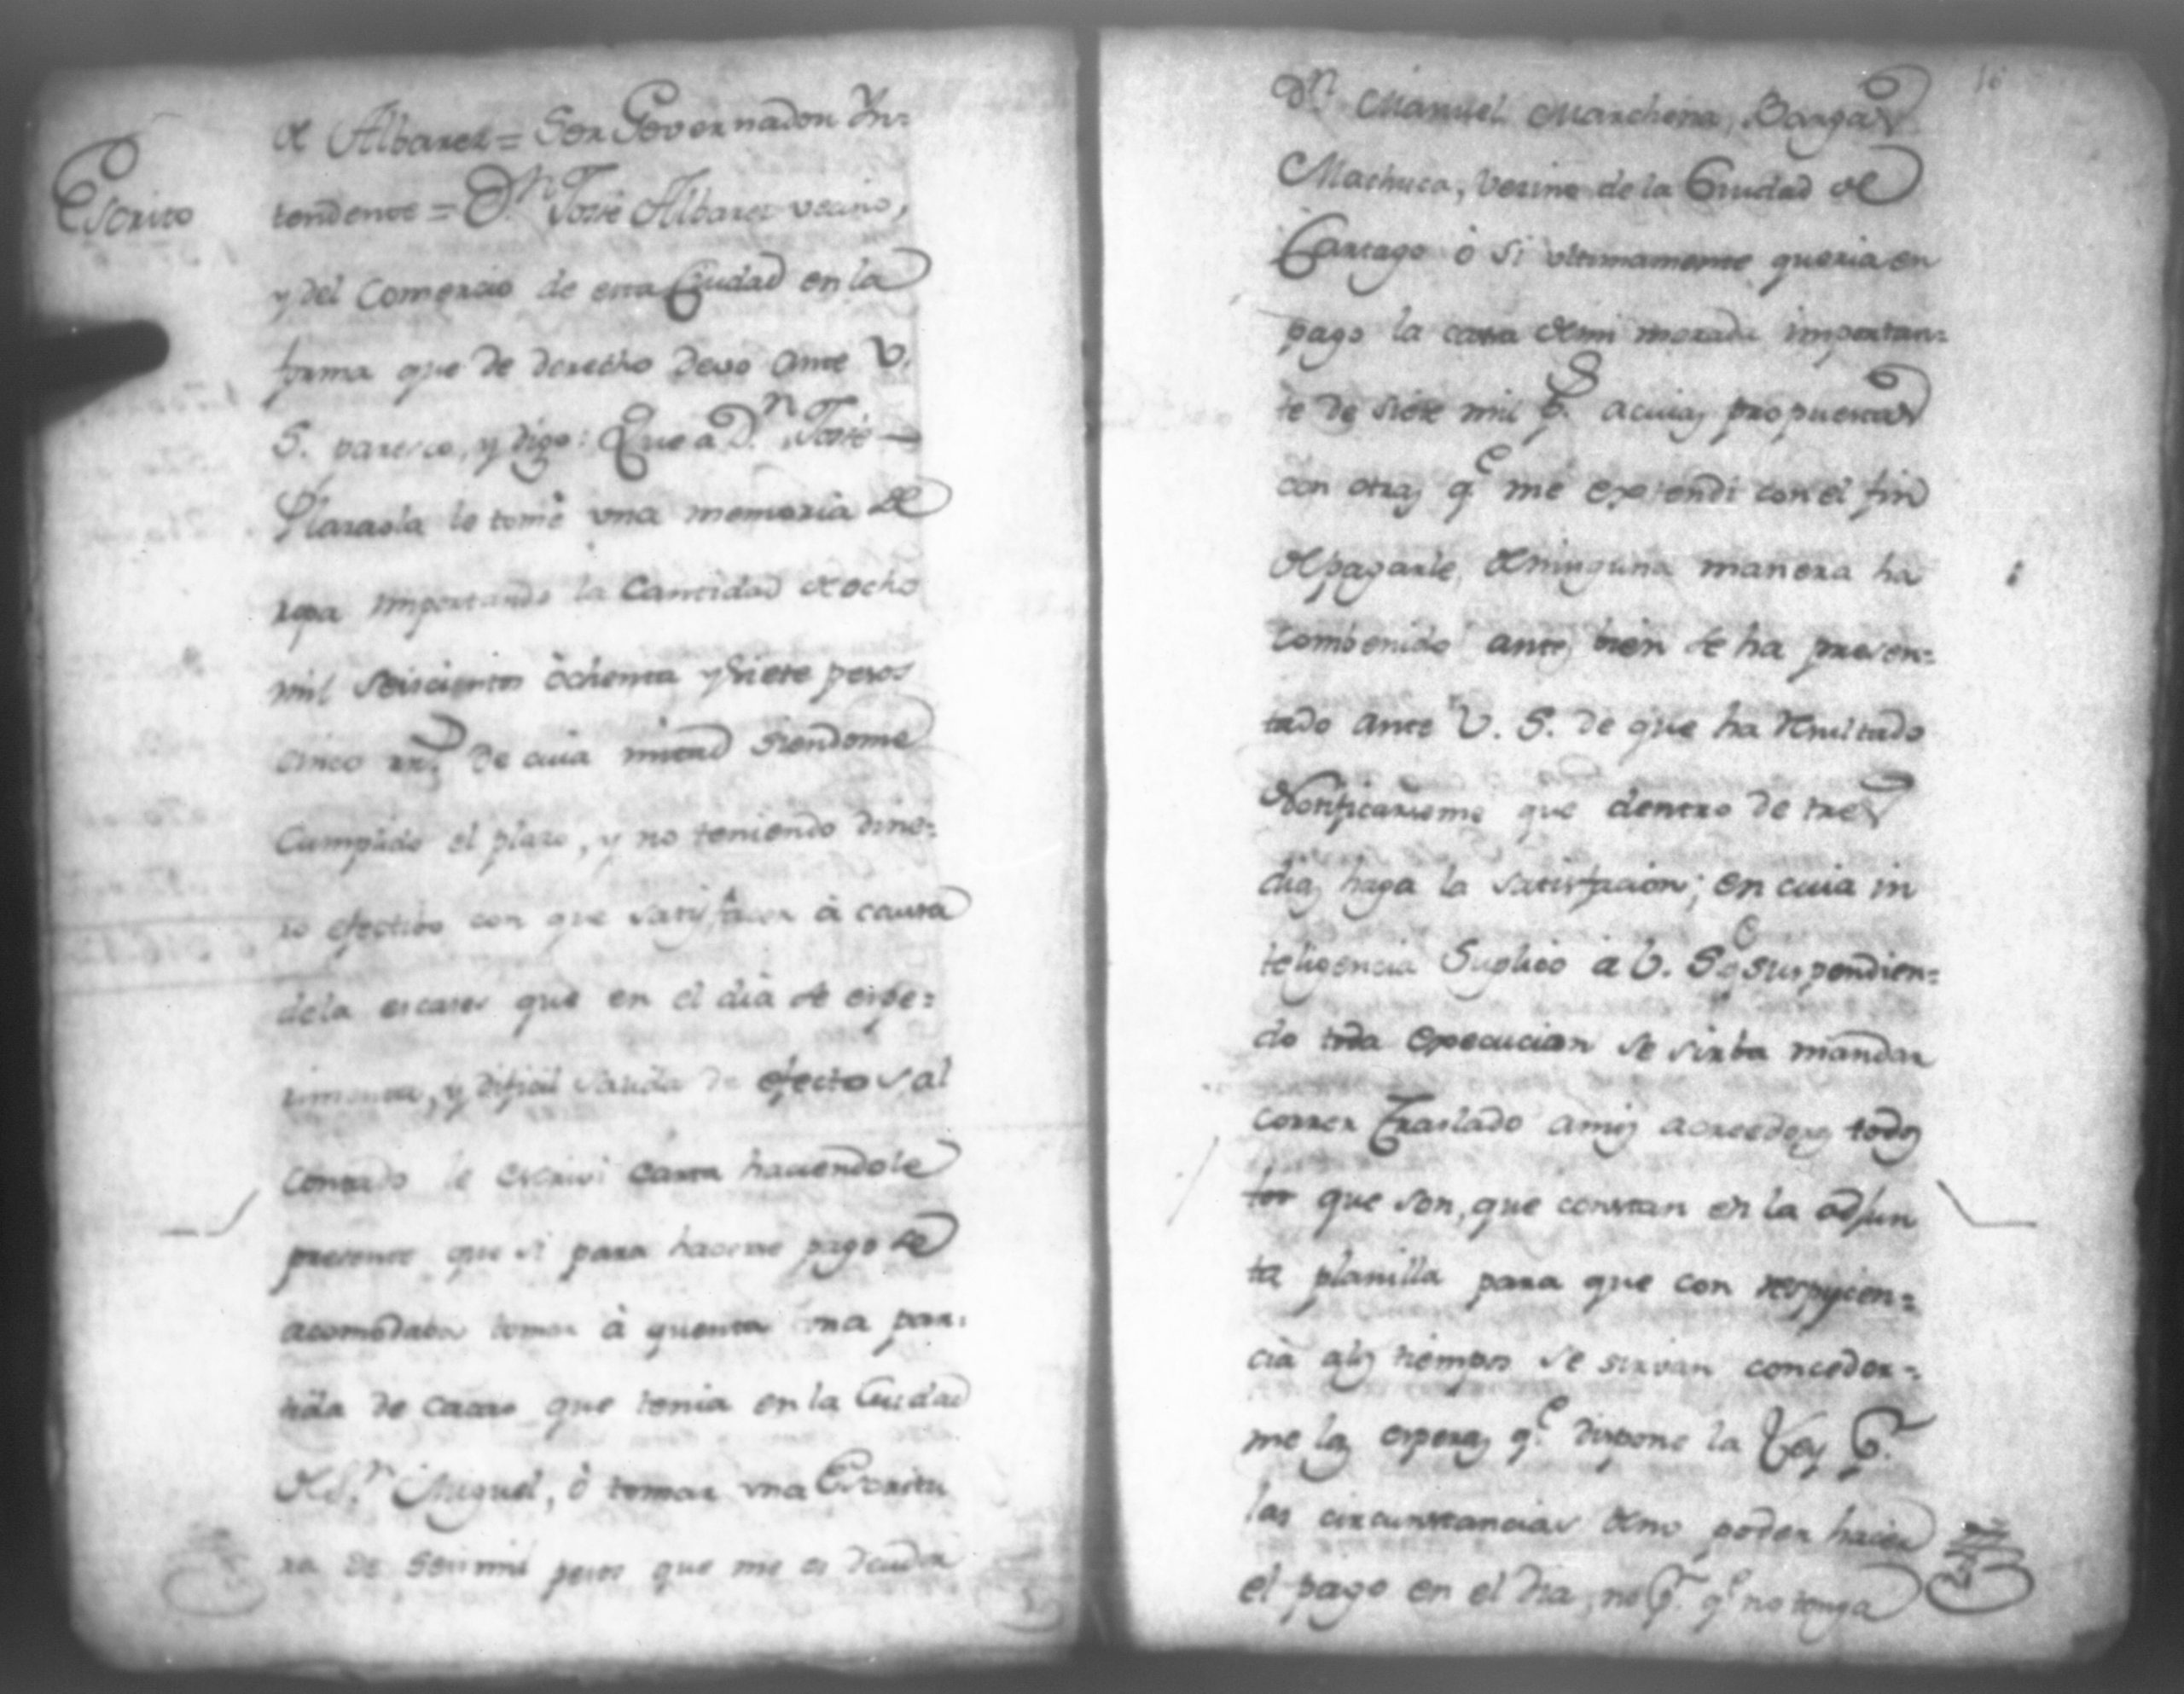 Escrito
de Albarez = Sor Governador Yn=
tendente = Dn. Josè Albarez vecino,
y del Comercio de esta Ciudad en la
forma que de derecho devo ante V.
S. paresco, y digo: Que a Dn. Josè
le tomè vna memoria de
ropa importando la Cantidad de ocho
mil seiscientos òchenta y siete pesos
cinco rrs. de cuia mitad siendome
Cumplido el plazo, y no teniendo dine=
ro efectivo con que satisfacer à causa
dela escases que en el dia se espe=
rimenta, y dificil salida de efectos al
contado le escrivi carta haciendole
presente que si para hacerse pago se
acomodaba tomar à quenta vna par=
tida de cacao que tenia en la Ciudad
de Sn. Miguel, ò tomar vna Escritu
ra de seis mil pesos que me es deudor
16
Dn. Manuel Marchena, Bargas
Machuca, Vecino de la Ciudad de
Cartago ò si vltimamente queria en
pago la casa de mi morada importan=
te de siete mil ps. acuias propuestas
con otras qe me extendi con el fin
de pagarle, de ninguna manera ha
combenido antes bien se ha presen=
tado ante V. S. de que ha resultado
Notificarseme que dentro de tres
dias haga la satisfacion; en cuia in
teligencia Suplico à V. S qe suspendien=
do toda execucion se sirba mandar
correr Traslado amis acreedores todos
los que son, que constan en la adjun
ta planilla para que con respicien=
cia alos tiempos se sirvan conceder=
me las esperas qe. dispone la Ley Pr.
las circunstancias de no poder hacer
el pago en el dia, no Pr. qe no tenga